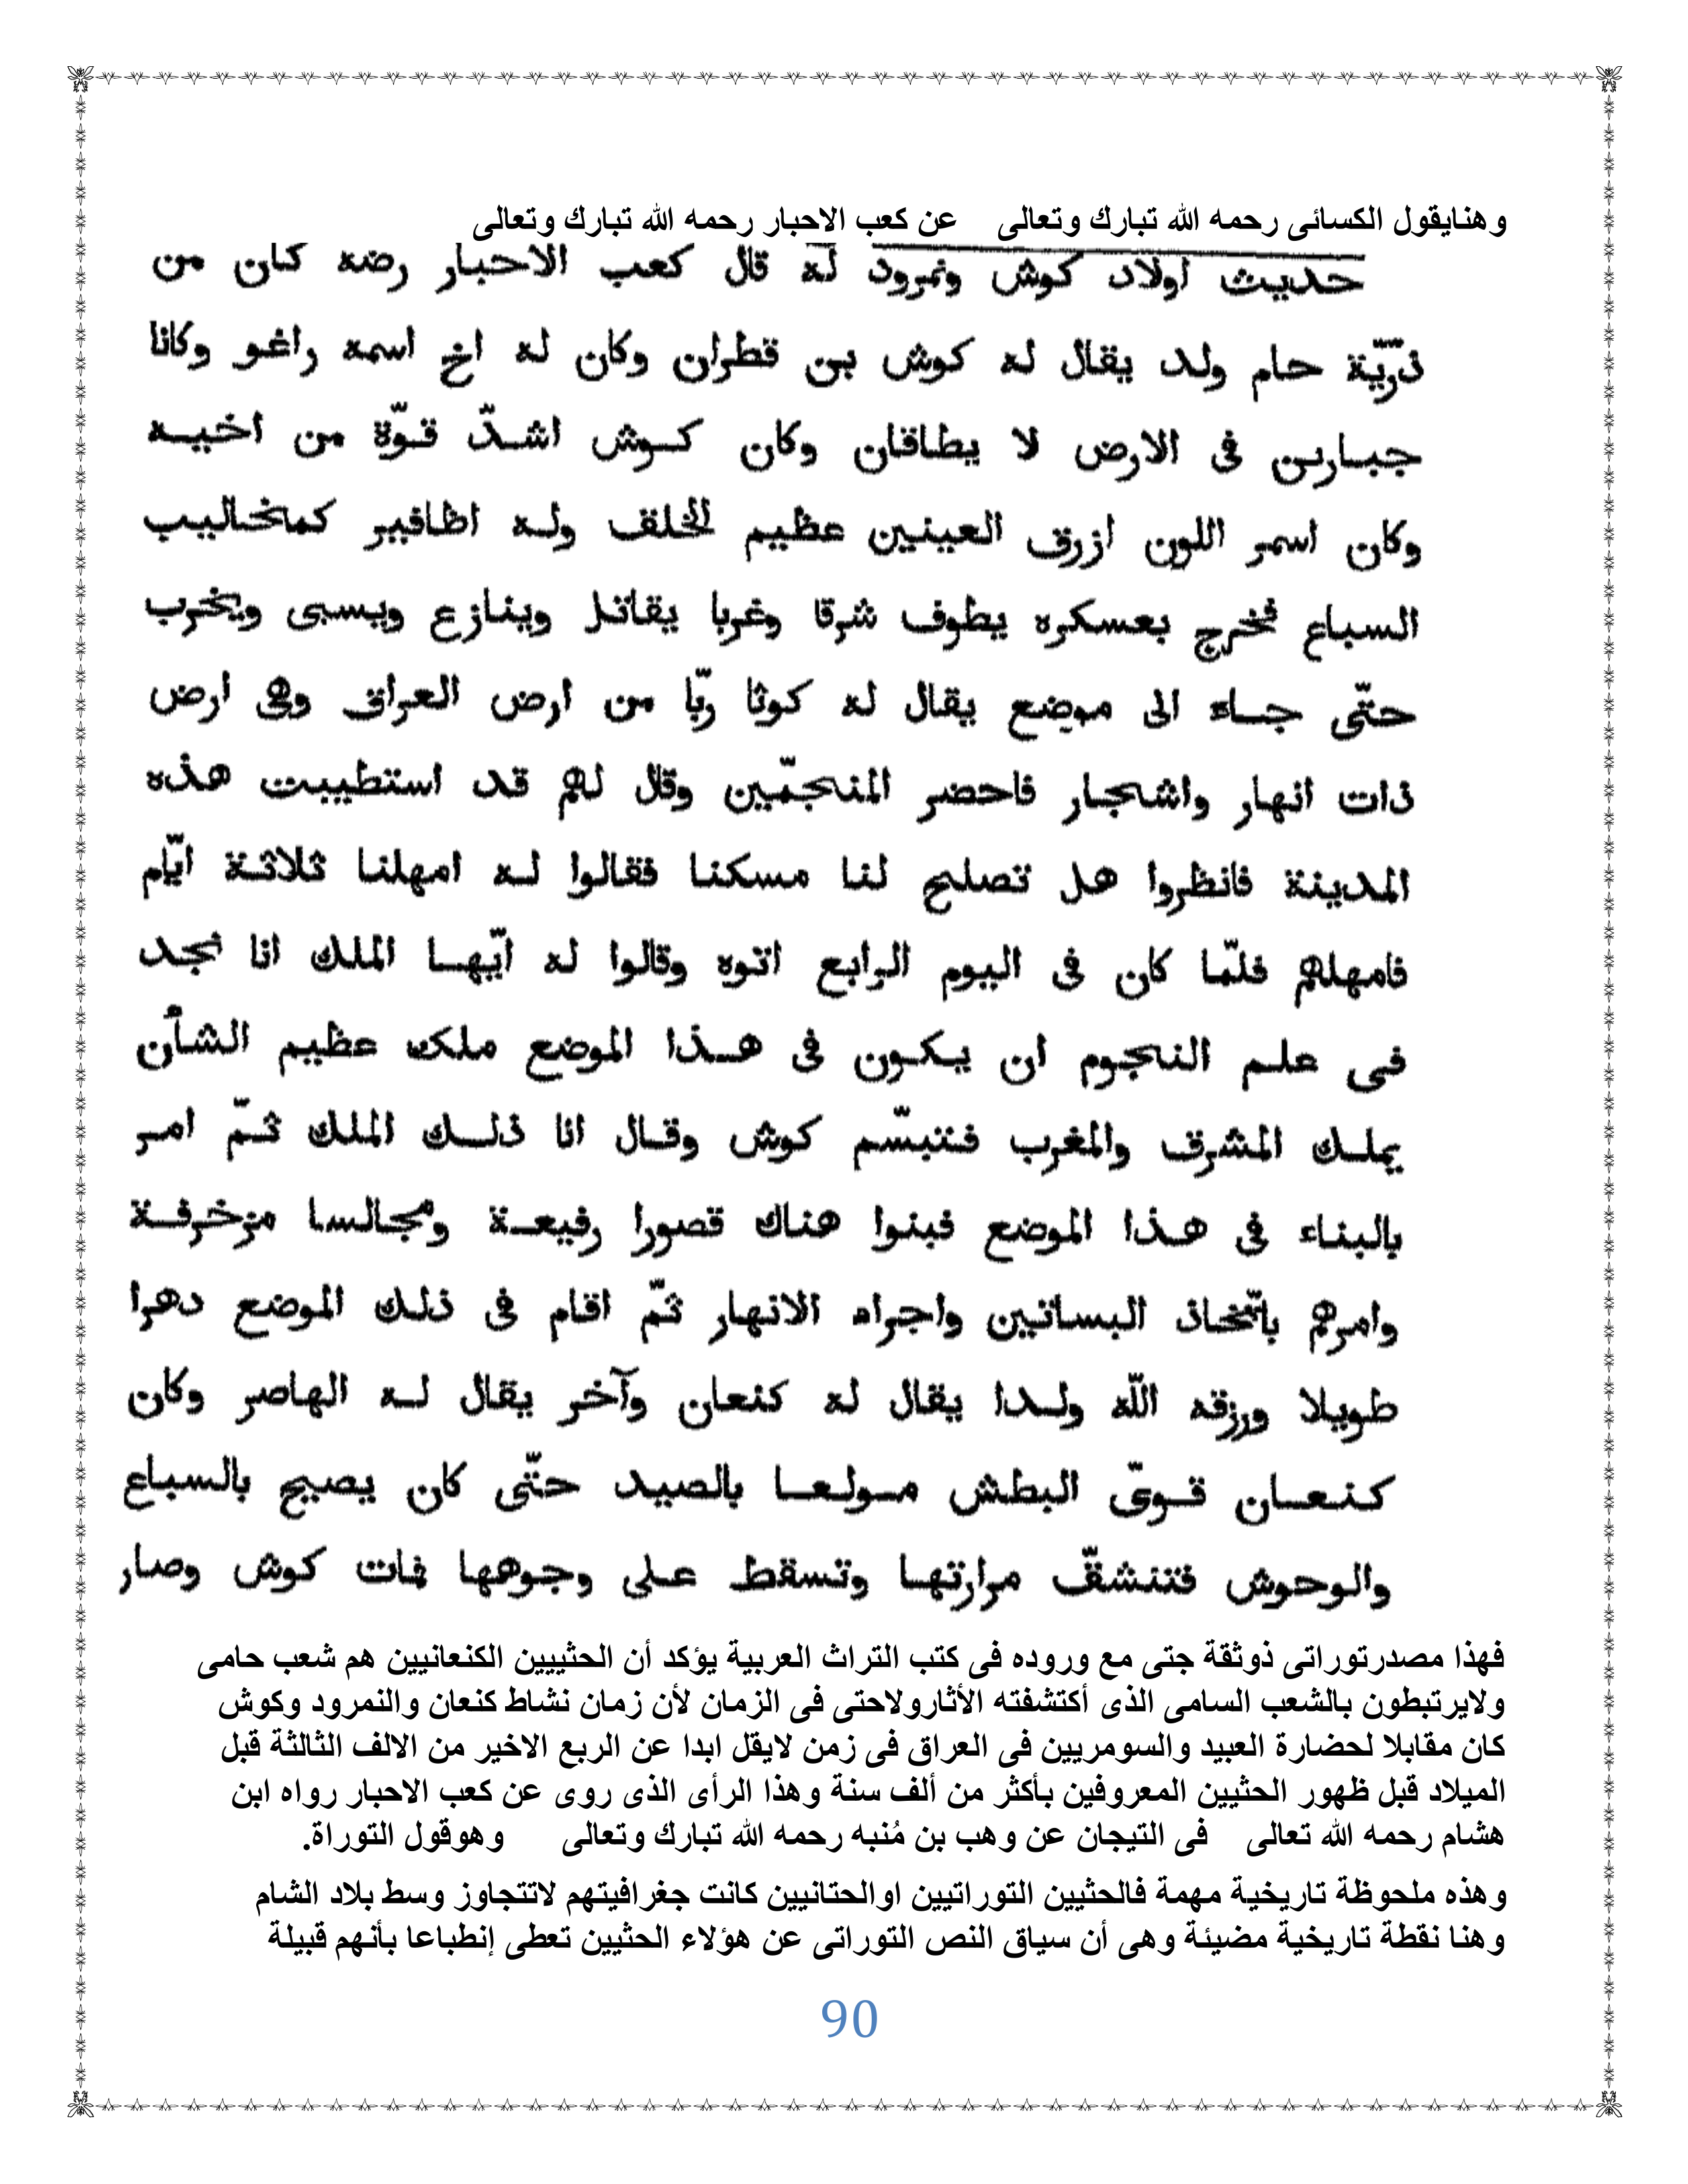 وهنايقول الكسائى رحمه الله تبارك وتعالى عن كعب الاحبار رحمه الله تبارك وتعالى
حديث اولاد كوش ونمرود له قال كعب الاحبار رضه كان من
ذرّيّة حام ولد يقال له كوش بن قطران وكان له اخ اسمه راغو وكانا
جبارين فى الارض لا يطاقان وكان كوش اشدّ قوّة من اخيه
وكان اسمر اللون ازرق العينين عظيم الخلق وله اظافير كمخاليب
السباع فخرج بعسكره يطوف شرقا وغربا يقاتل وينازع ويسبى ويخرب
حتّى جاء الى موضع يقال له كوثا ربّا من ارض العراق وهى ارض
ذات انهار واشجار فاحضر المنجّمين وقال لهم قد استطيبت هذه
المدينة فانظروا هل تصلح لنا مسكنا فقالوا له امهلنا ثلاثة ايّام
فامهلهم فلمّا كان فى اليوم الرابع اتوه وقالوا له ايّها الملك انا نجد
فى علم النجوم ان يكون فى هذا الموضع ملك عظيم الشأن
يملك المشرق والمغرب فتبسّم كوش وقال انا ذلك الملك ثمّ امر
بالبناء فى هذا الموضع فبنوا هناك قصورا رفيعة ومجالسا مزخرفة
وامرهم باتّخاذ البساتين واجراء الانهار ثمّ اقام فى ذلك الموضع دهرا
طويلا ورزقه اللّه ولدا يقال له كنعان وآخر يقال له الهاصر وكان
كنعان قوىّ البطش مولعا بالصيد حتّى كان يصيح بالسباع
والوحوش فتنشقّ مرارتها وتسقط على وجوهها فمات كوش وصار
فهذا مصدرتوراتى ذوثقة جتى مع وروده فى كتب التراث العربية يؤكد أن الحثييين الكنعانيين هم شعب حامى
ولايرتبطون بالشعب السامى الذى أكتشفته الأثارولاحتى فى الزمان لأن زمان نشاط كنعان والنمرود وكوش
كان مقابلا لحضارة العبيد والسومريين فى العراق فى زمن لايقل ابدا عن الربع الاخير من الالف الثالثة قبل
الميلاد قبل ظهور الحثيين المعروفين بأكثر من ألف سنة وهذا الرأى الذى روى عن كعب الاحبار رواه ابن
هشام رحمه الله تعالى فى التيجان عن وهب بن مُنبه رحمه الله تبارك وتعالى وهوقول التوراة.
وهذه ملحوظة تاريخية مهمة فالحثيين التوراتيين اوالحتانيين كانت جغرافيتهم لاتتجاوز وسط بلاد الشام
وهنا نقطة تاريخية مضيئة وهى أن سياق النص التوراتى عن هؤلاء الحثيين تعطى إنطباعا بأنهم قبيلة
90